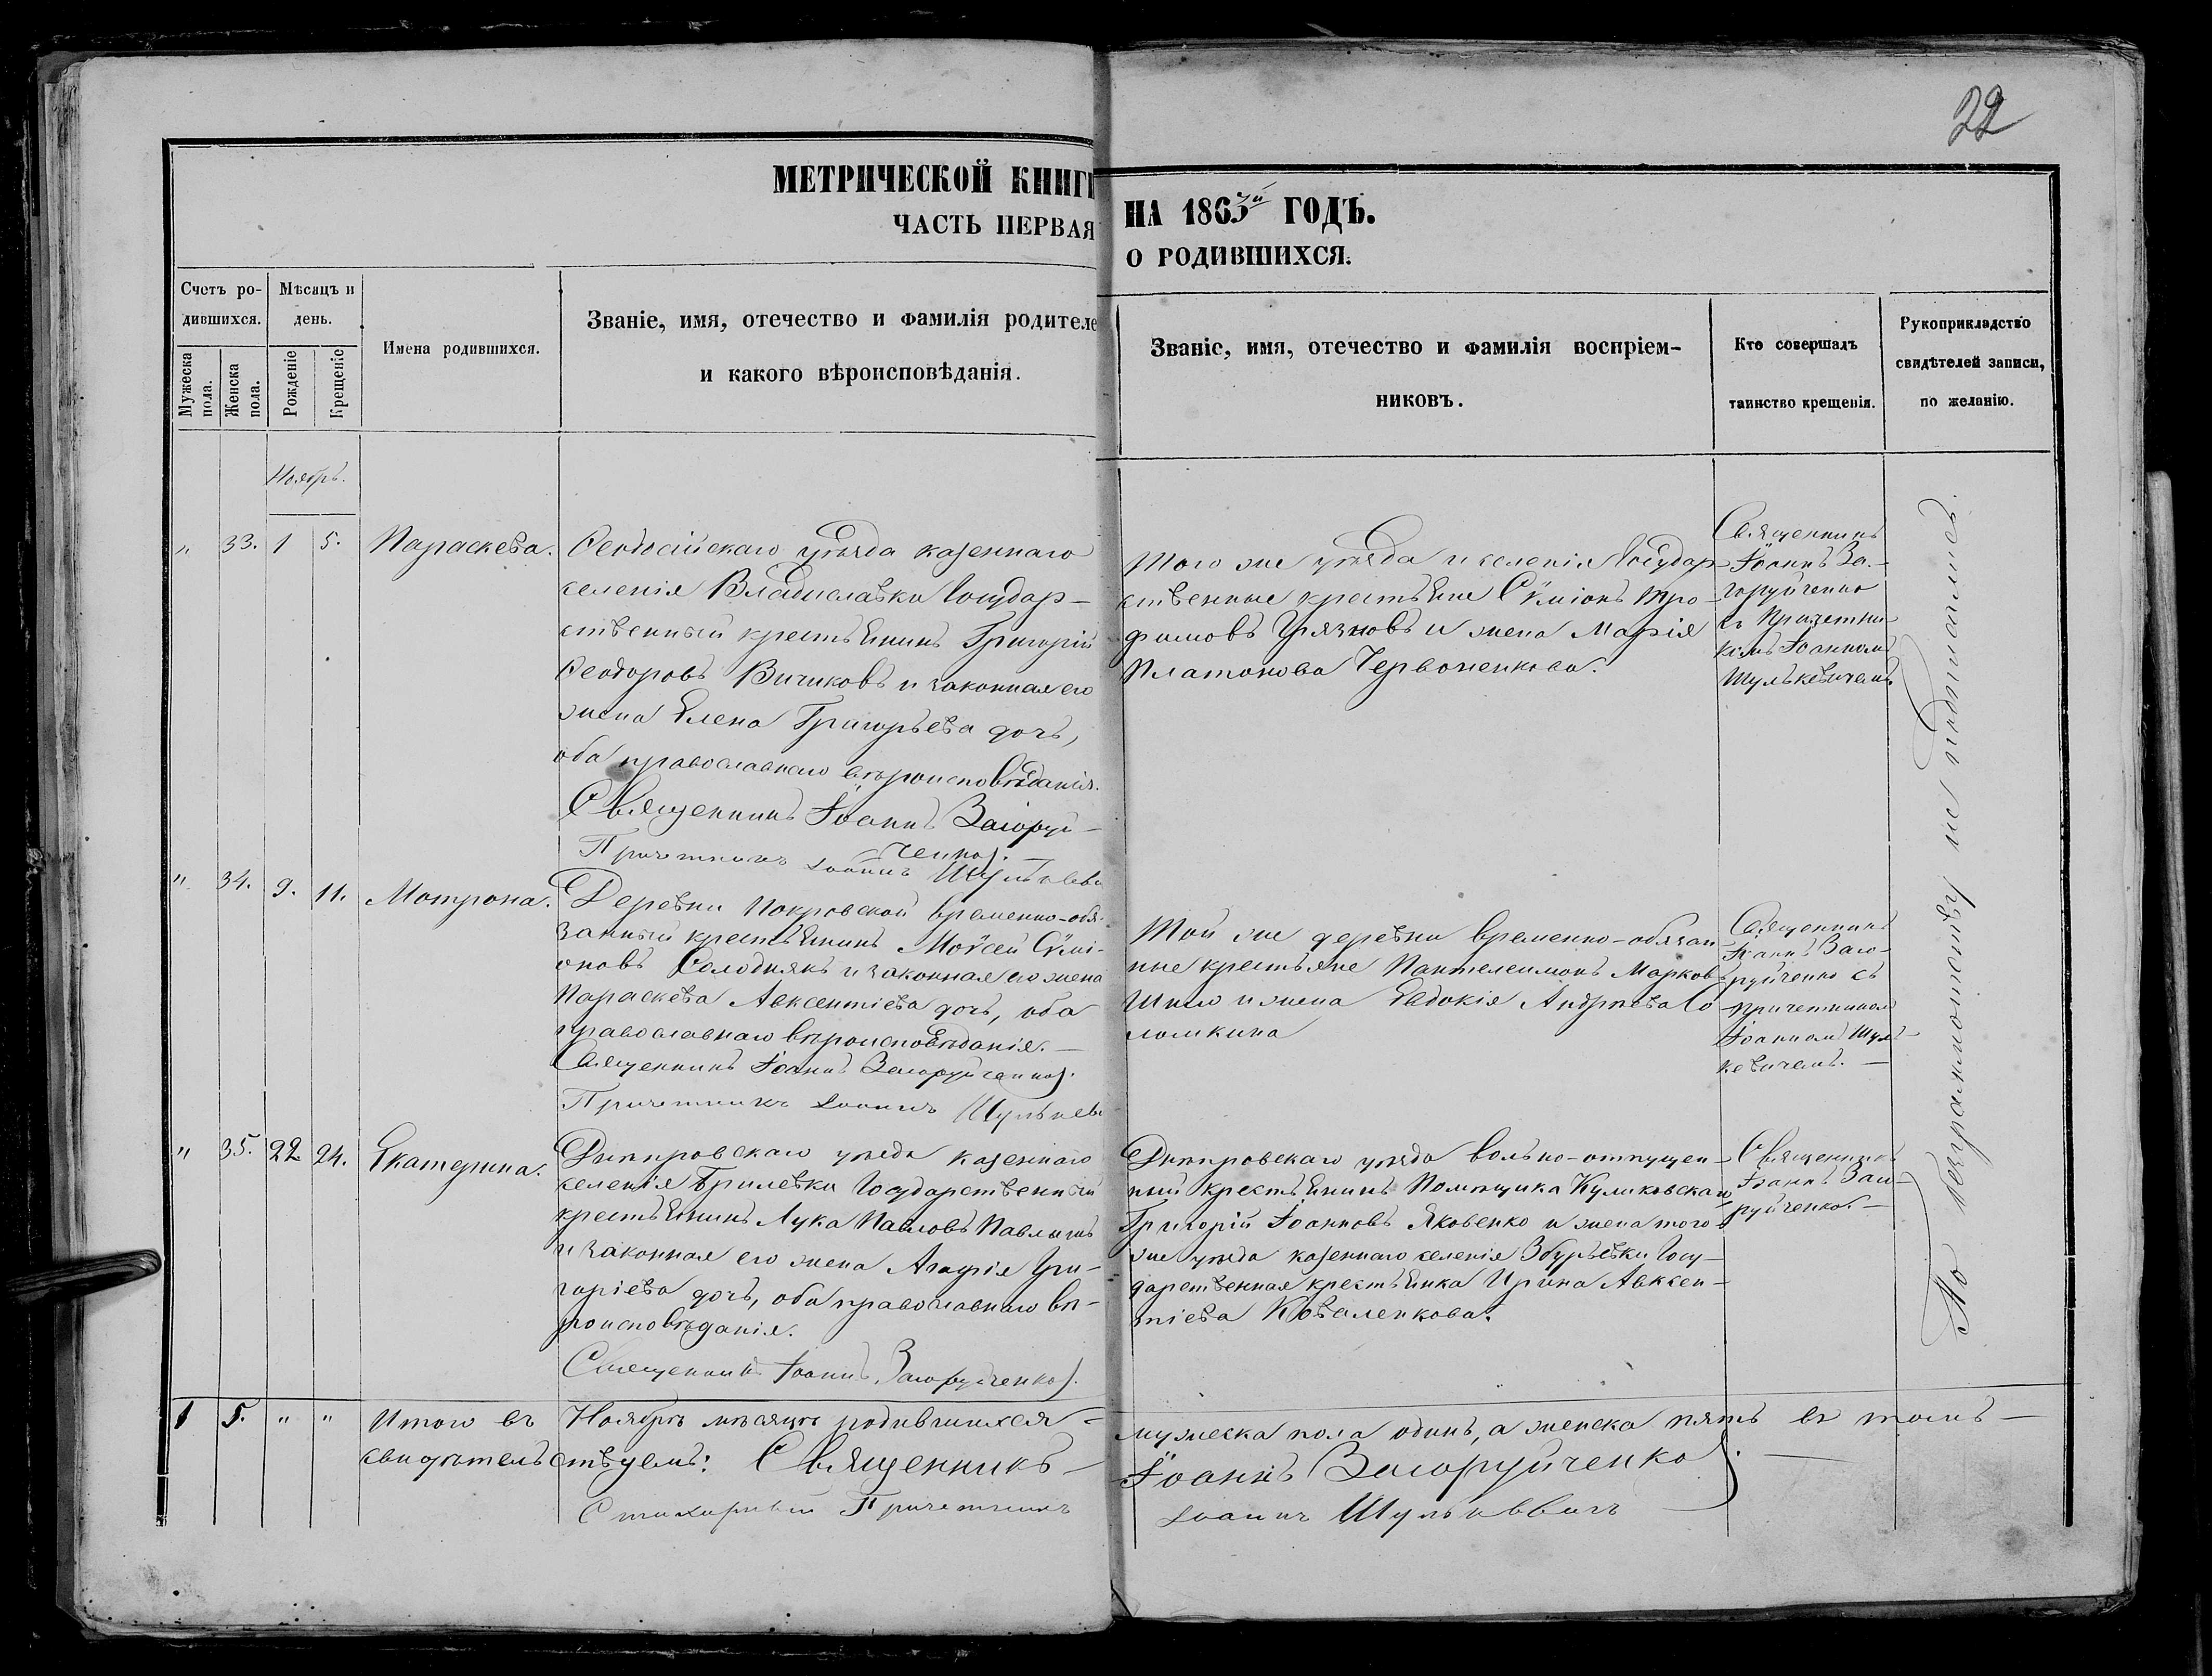 22
МЕТРИЧЕСКОЙ КНИГИ
НА 1865й ГОДЪ.
ЧАСТЬ ПЕРВАЯ
О РОДИВШИХСЯ.
Счетъ ро-
дившихся.
Мѣсяцъ и
день.
Мужеска пола.
Женска пола.
Рожденіе
Крещеніе
Имена родившихся.
Званіе, имя, отечество и фамилія родителе
и какого вѣроисповѣданія.
Званіе, имя, отечество и фамилія воспріем-
никовъ.
Кто совершалъ
таинство крещенія.
Рукоприкладство
свидѣтелей записи,
по желанію.
Ноябрь.
" 33. 1 5. Параскева.
Ѳеодосійскаго уѣзда казеннаго
селенія Владиславки Государ-
ственный крестьянинъ Григорій
Ѳеодоровъ Вичиковъ и законная его
жена Елена Григорьева дочь,
оба православнаго вѣроисповѣданія.
Священникъ Іоаннъ Загоруй-
ченко.
Причетникъ Іоаннъ Шулькеви
Того же уѣзда и селенія Государ-
ственные крестьяне Сѵміонъ Тро-
фимовъ Грязновъ и жена Марія
Платонова Червоненкова.
Священникъ
Іоаннъ За-
горуйченко
съ Причетни-
комъ Іоанномъ
Шулькевичемъ.
" 34. 9. 11. Мотрона.
Деревни Покровской временно-обя-
занный крестьянинъ Моѵсей Сѵмі-
оновъ Солоднякъ и законная его жена
Параскева Авксентіева дочь, оба
православнаго вѣроисповѣданія.
Священникъ Іоаннъ Загоруйченко.
Причетникъ Іоаннъ Шулькеви
Той же деревни временно-обязан
ные крестьяне Пантелеимонъ Марковъ
Шило и жена Евдокія Андреева Со-
ломкина
Священникъ
Іоаннъ Заго-
руйченко съ
причетникомъ
Іоанномъ Шуль-
кевичемъ.
" 35. 22 24. Екатерина.
Днѣпровскаго уѣзда казеннаго
селенія Брилевки Государственный
крестьянинъ Лука Павловъ Павлышъ
и законная его жена Агафія Гри-
горіева дочь, оба православнаго вѣ-
роисповѣданія.
Священникъ Іоаннъ Загоруйченко.
Днѣпровскаго уѣзда вольно-отпущен-
ный крестьянинъ Помѣщика Куликовскаго
Григорій Іоанновъ Яковенко и жена того
же уѣзда казеннаго селенія Збурьевки Госу-
дарственная крестьянка Ирина Авксен-
тіева Коваленкова.
Священникъ
Іоаннъ Заго-
руйченко.
По безграмотству не подписались.
1 5. " " Итого въ Ноябрѣ мѣсяцѣ родившихся
мужеска пола одинъ, а женска пять въ томъ
свидѣтельствуемъ: Священникъ
Іоаннъ Загоруйченко
Стихарный Причетникъ
Іоаннъ Шулькевичъ